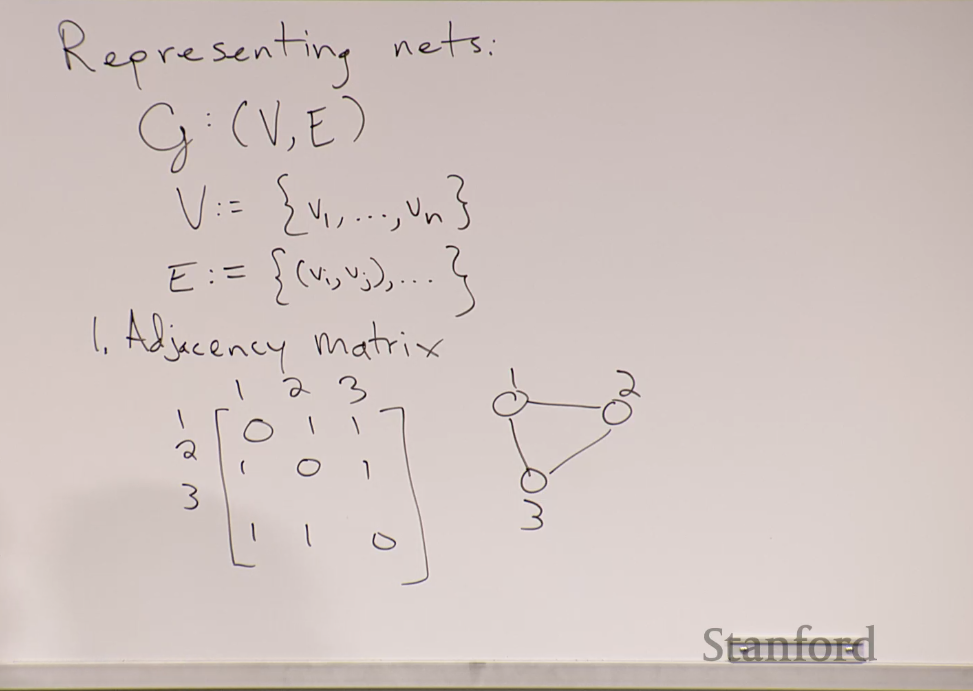 Representing nets:
G: (V, E)
V := {v1, ..., vn}
E := {(vi, vj), ...}
1. Adjacency matrix
1 2 3
1 [0 1 1
2 1 0 1
3 1 1 0]
1 2
3
Stanford